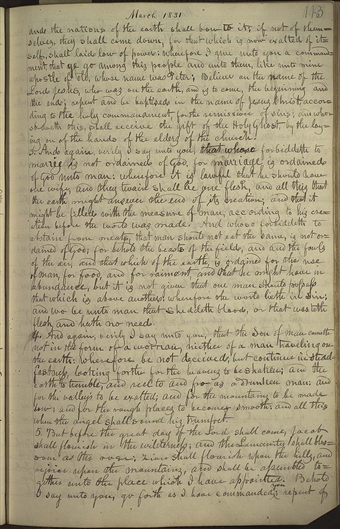 March 1831
183
and the nations of the earth shall bow to it; if not of them-
selves, they shall come down, for that which is now exalted, of its
self, shall laid low of power: wherefore I give unto you a command-
ment that ye go among this people and unto them, like unto mine
apostle of old, whose name was Peter; Believe on the name of the
Lord Jesus, who was on the earth, and is to come, the beginning and
the end; repent and be baptised in the name of Jesus Christ accor-
ding to the holy commandment for the remission of sins; and who-
so doeth this, shall receive the gift of the Holy Ghost, by the lay-
ing on of the hands of the elders of this church.
3 And again verily I say unto you, that whoso forbiddeth to
marry is not ordained of God, for marriage is ordained
of God unto man: wherefore it is lawful that he should have
one wife, and they twain shall be one flesh, and all this that
the earth might answer the end of its creation; and that it
might be filled with the measure of man, according to his crea-
tion before the world was made. And whoso forbiddeth to
abstain from meats, that man should not eat the same, is not or-
dained of God; for behold the beasts of the fields, and the fowls
of the air, and that which of the earth, is ordained for the use
of man, for food, and for raiment, and that he might have in
abundance, but it is not given that one man should possess
that which is above another: wherefore the world lieth in sin;
and wo be unto man that sheddeth blood, or that wasteth
flesh and hath no need.
4 And again, verily I say unto you, that the Son of Man cometh
not in the form of a woman, neither of a man traveling on
the earth: wherefore be not deceived, but continue in stead-
fastness, looking forth for the heavens to be shaken; and the
earth to tremble, and reel to and fro as a drunken man; and
for the valleys to be exalted; and for the mountains to be made
low; and for the rough places to become smooth: and all this
when the angel shall sound his trumpet.
5 But before the great day of the Lord shall come, Jacob
shall flourish in the wilderness; and the Lamanites shall blos-
som as the rose; Zion shall flourish upon the hills, and
rejoice upon the mountains, and shall be assembled to-
gether unto the place which I have appointed. Behold
I say unto you, go forth as I have commanded you; repent of